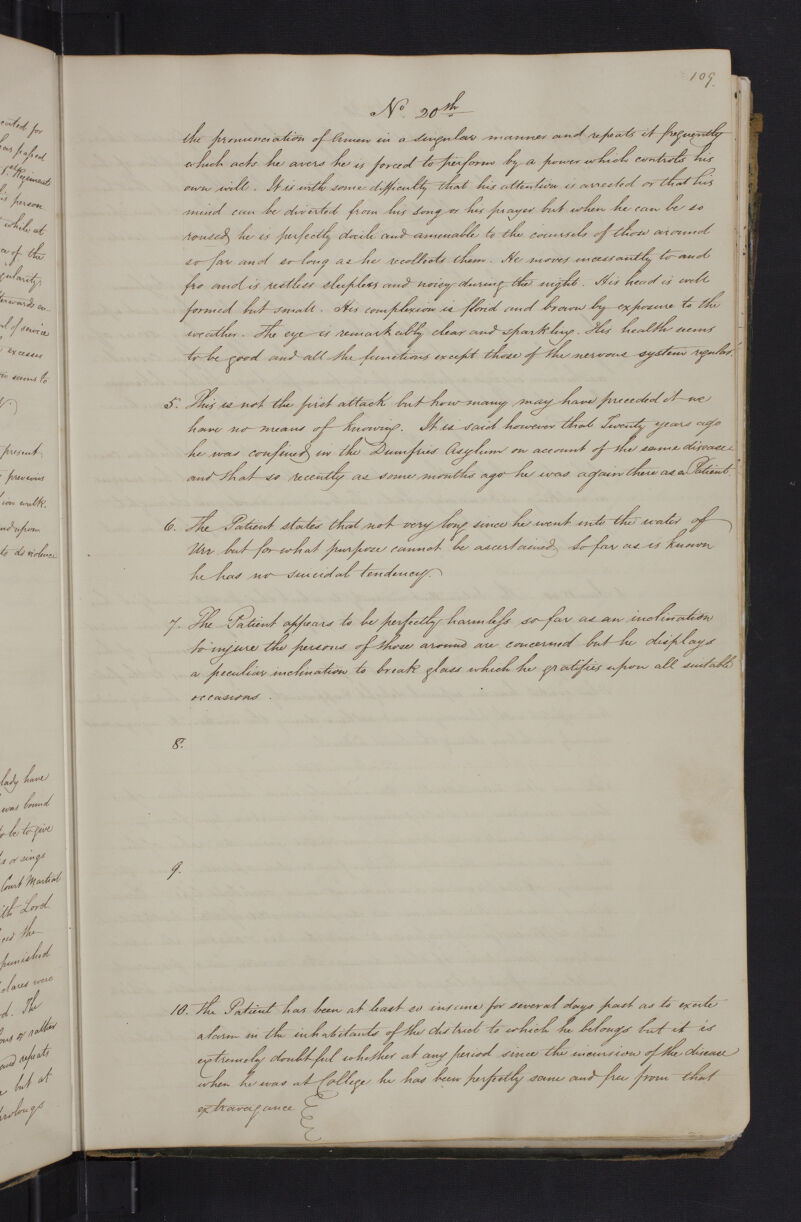 cated for
has passed
1st Regiment
his person
while at
of the
gularity,
terwards en-
al of service
excesses
seems to
present
previous
own walk.
nd upon
to do violence
lady have
was bound
to be to give
s or sings
Court Martial
ith Lord
the
punished
were
d. The
or rather
and repeats
but at
prolongs
109.
No. 20th
the pronunciation of Amen in a singular manner and repeats it frequently
which acts he avers he is forced to perform by a power which controls his
own will. It is with some difficulty that his attention is arrested or that his
mind can be diverted from his song or his prayer but when he can be so
roused, he is perfectly docile and amenable to the counsels of those around
so far and so long as he recollects them. He moves incessantly to and
fro and is restless sleepless and noisy during the night. His head is well
formed but small. His complexion is florid and brown by exposure to the
weather. The eye is remarkably clear and sparkling. His health seems
to be good and all the functions except those of the nervous system regular.
5. This is not the first attack but how many may have preceded it we
have no means of knowing. It is said however that Twenty years ago
he was confined in the Dumfries Asylum on account of the same disease
and that so recently as some months ago he was again there as a Patient.
6. The Patient states that not very long since he went into the water of
Urr but for what purpose cannot be ascertained, so far as is known
he has no suicidal tendency.
7. The Patient appears to be perfectly harmless so far as an inclination
to injure the persons of those around are concerned but he displays
a peculiar inclination to break glass which he gratifies upon all suitable
occasions.
8.
9.
10. The Patient has been at least so insane for several days past as to excite
alarm in the inhabitants of the district to which he belongs but it is
extremely doubtful whether at any period since the incursion of the disease
when he was at College he has been perfectly sane and free from that
extravagance